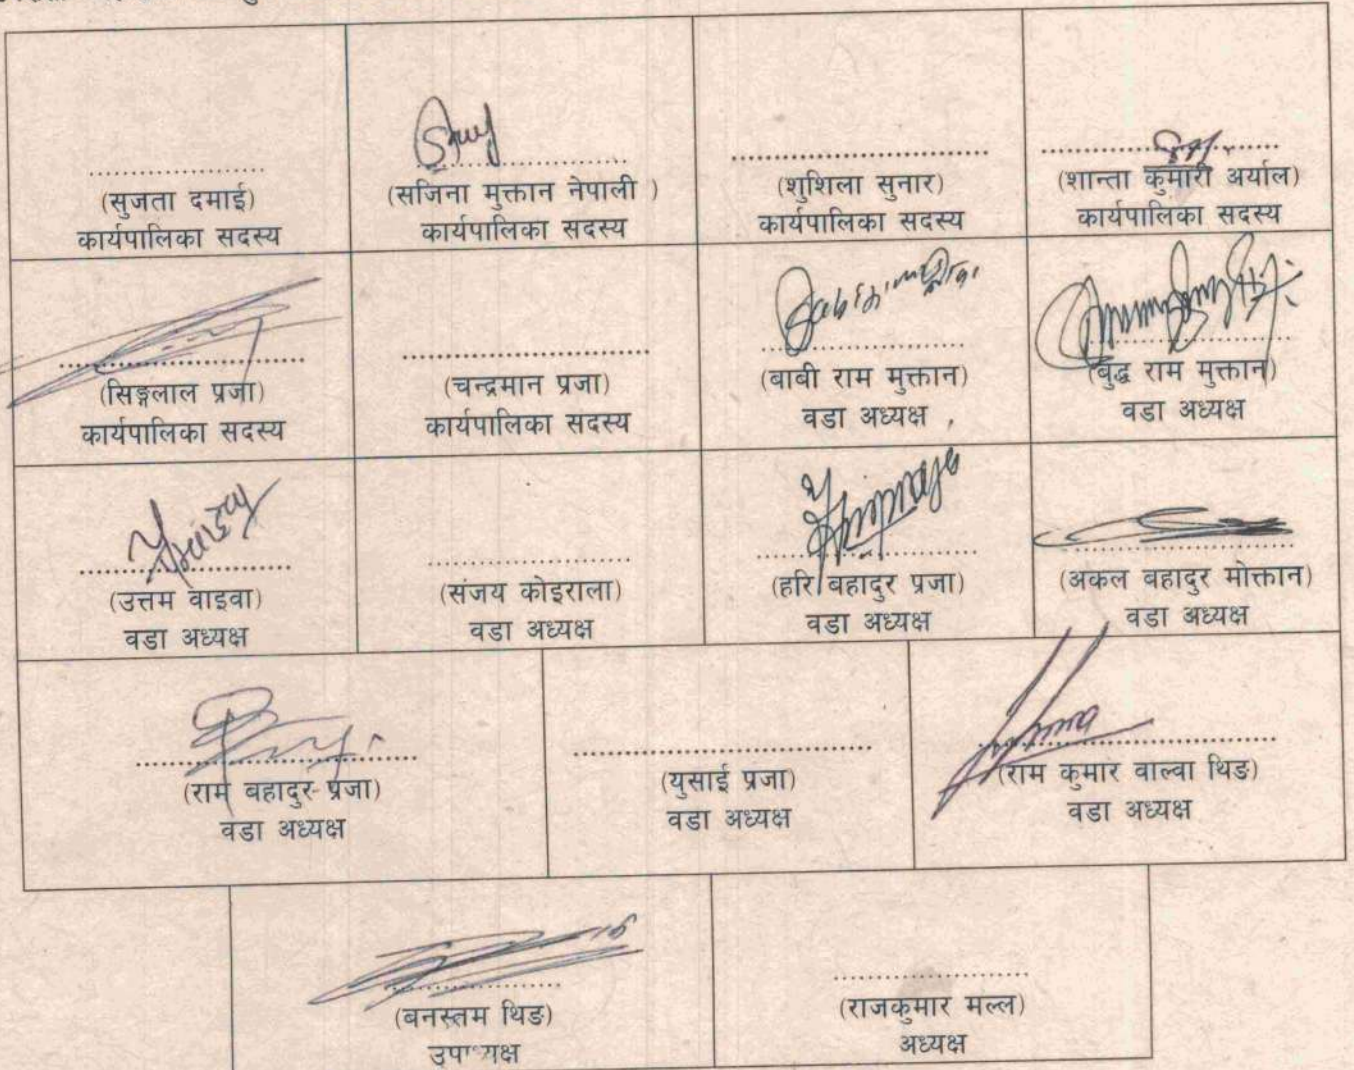 (सुजता दमाई)
कार्यपालिका सदस्य
(सजिना मुक्तान नेपाली )
कार्यपालिका सदस्य
(शुशिला सुनार)
कार्यपालिका सदस्य
(शान्ता कुमारी अर्याल)
कार्यपालिका सदस्य
(सिङ्गलाल प्रजा)
कार्यपालिका सदस्य
(चन्द्रमान प्रजा)
कार्यपालिका सदस्य
(वावी राम मुक्तान)
वडा अध्यक्ष
(बुद्ध राम मुक्तान)
वडा अध्यक्ष
(उत्तम वाइवा)
वडा अध्यक्ष
(संजय कोइराला)
वडा अध्यक्ष
(हरि बहादुर प्रजा)
वडा अध्यक्ष
(अकल बहादुर मोक्तान)
वडा अध्यक्ष
(राम बहादुर प्रजा)
वडा अध्यक्ष
(युसाई प्रजा)
वडा अध्यक्ष
(राम कुमार वाल्वा थिङ)
वडा अध्यक्ष
(बनस्तम थिङ)
उपाध्यक्ष
(राजकुमार मल्ल)
अध्यक्ष